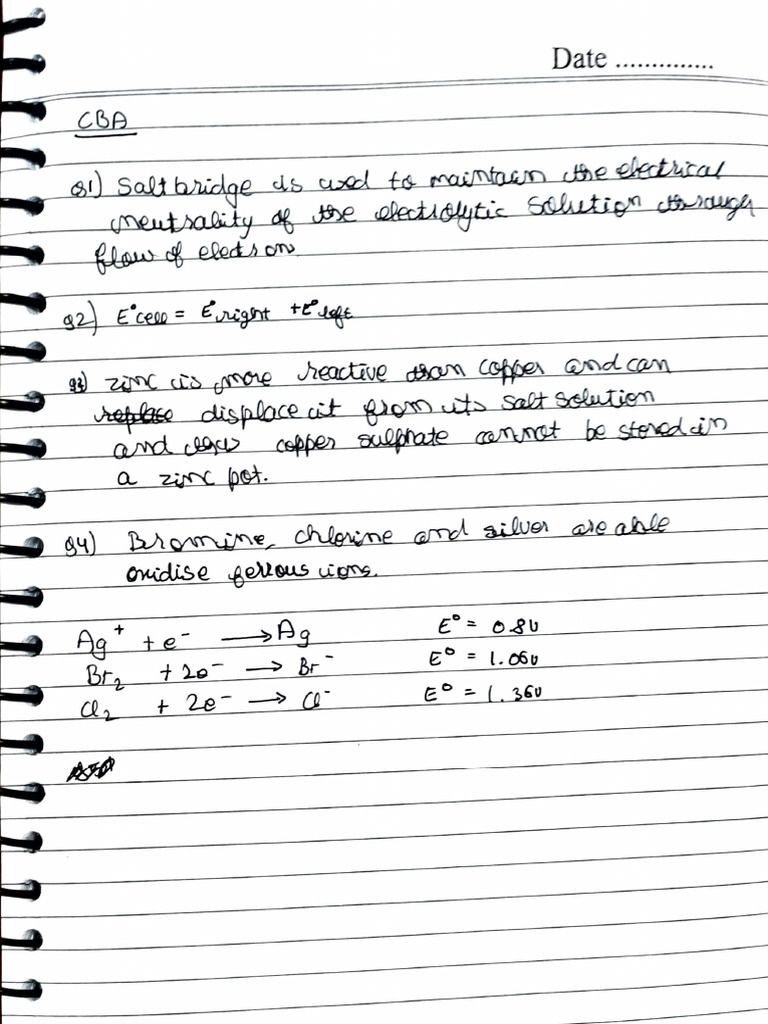 Date ..............
CBA
Q1) Salt bridge is used to maintain the electrical
neutrality of the electrolytic solution through
flow of electron.
Q2) E°cell = E°right + E°left
Q3) zinc is more reactive than copper and can
replace displace it from its salt solution
and copper sulphate cannot be stored in
a zinc pot.
Q4) Bromine, chlorine and silver are able
oxidise ferrous ions.
Ag⁺ + e⁻ ⟶ Ag E° = 0.8V
Br₂ + 2e⁻ ⟶ Br⁻ E° = 1.06V
Cl₂ + 2e⁻ ⟶ Cl⁻ E° = 1.36V